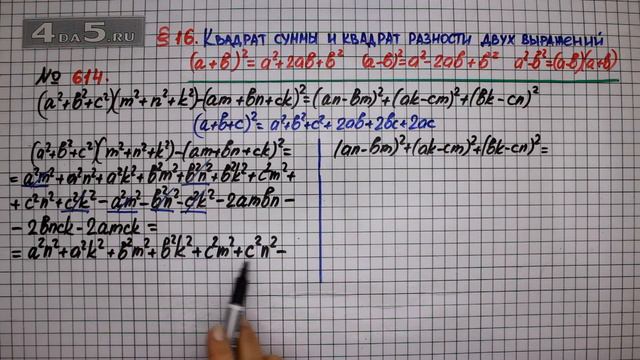 4DA5.RU
§ 16. Квадрат суммы и квадрат разности двух выражений
(a+b)²=a²+2ab+b² (a-b)²=a²-2ab+b² a²-b²=(a-b)(a+b)
№ 614.
(a²+b²+c²)(m²+n²+k²)-(am+bn+ck)²=(an-bm)²+(ak-cm)²+(bk-cn)²
(a+b+c)²=a²+b²+c²+2ab+2bc+2ac
(a²+b²+c²)(m²+n²+k²)-(am+bn+ck)²=
=a²m²+a²n²+a²k²+b²m²+b²n²+b²k²+c²m²+
+c²n²+c²k²-a²m²-b²n²-c²k²-2ambn-
-2bnck-2amck=
=a²n²+a²k²+b²m²+b²k²+c²m²+c²n²-
(an-bm)²+(ak-cm)²+(bk-cn)²=